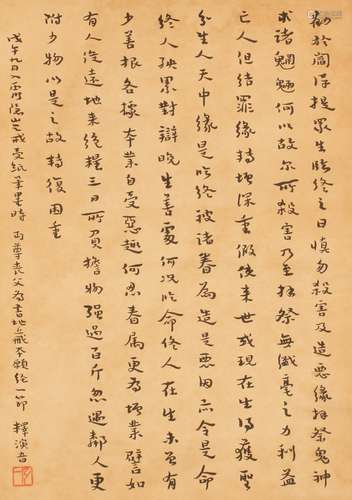 勸於閻浮提眾生臨終之日慎勿殺害及造惡緣拜祭鬼神
求諸魍魎何以故爾所殺害乃至拜祭無纖毫之力利益
亡人但結罪緣轉增深重假使來世或現在生得獲聖
分生人天中緣是臨終被諸眷屬造是惡因亦令是命
終人殃累對辯晚生善處何況臨命終人在生未曾有
少善根各據本業自受惡趣何忍眷屬更為增業譬如
有人從遠地來絕糧三日所負擔物強過百斤忽遇鄰人更
附少物以是之故轉復困重
戊午九月入靈隱山乞戒受紙筆墨時丏尊喪父為書地藏本願經一節 釋演音